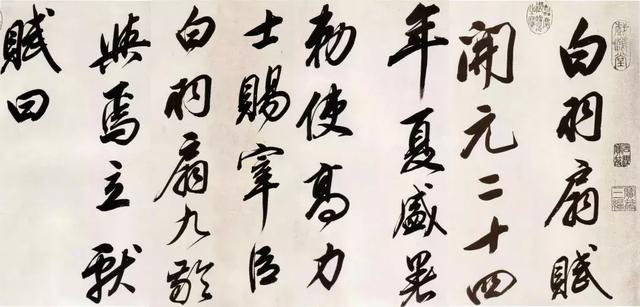 白羽扇賦
開元二十四
年夏盛暑
勅使高力
士賜宰臣
白羽扇九齡
與焉立獻
賦曰